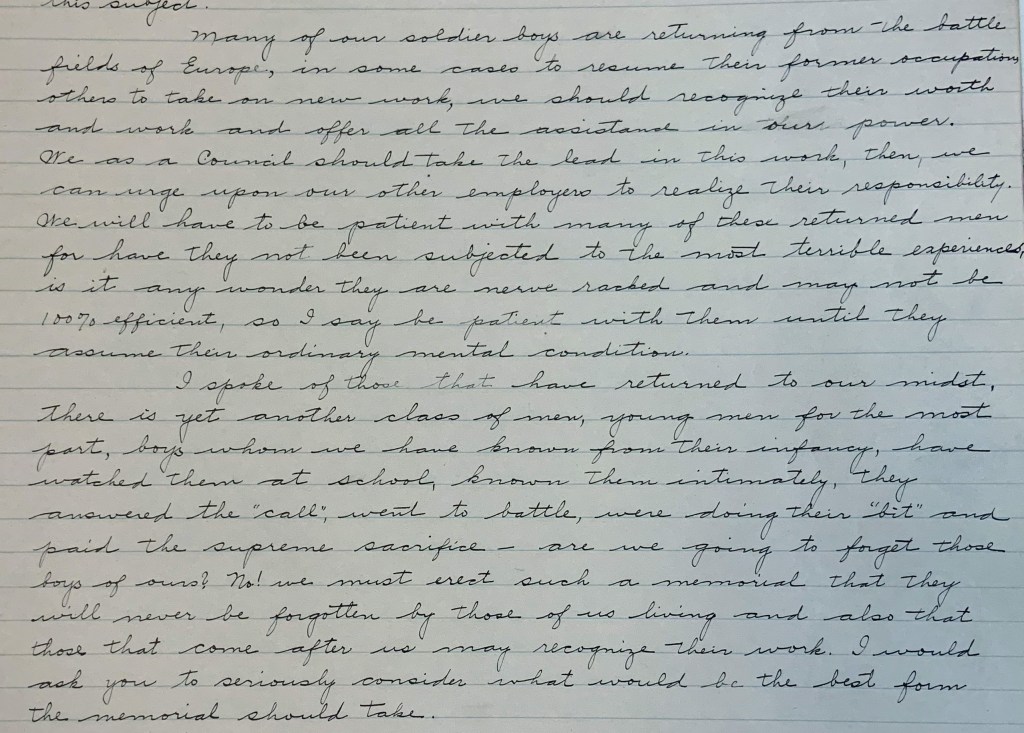 this subject.
Many of our soldier boys are returning from the battle
fields of Europe, in some cases to resume their former occupations
others to take on new work, we should recognize their worth
and work and offer all the assistand in our power.
We as a Council should take the lead in this work, then, we
can urge upon our other employers to realize their responsibility.
We will have to be patient with many of these returned men
for have they not been subjected to the most terrible experiences,
is it any wonder they are nerve racked and may not be
100% efficient, so I say be patient with them until they
assume their ordinary mental condition.
I spoke of those that have returned to our midst,
there is yet another class of men, young men for the most
part, boys whom we have known from their infancy, have
watched them at school, known them intimately, they
answered the "call", went to battle, were doing their "bit" and
paid the supreme sacrifice – are we going to forget those
boys of ours? No! we must erect such a memorial that they
will never be forgotten by those of us living and also that
those that come after us may recognize their work. I would
ask you to seriously consider what would be the best form
the memorial should take.